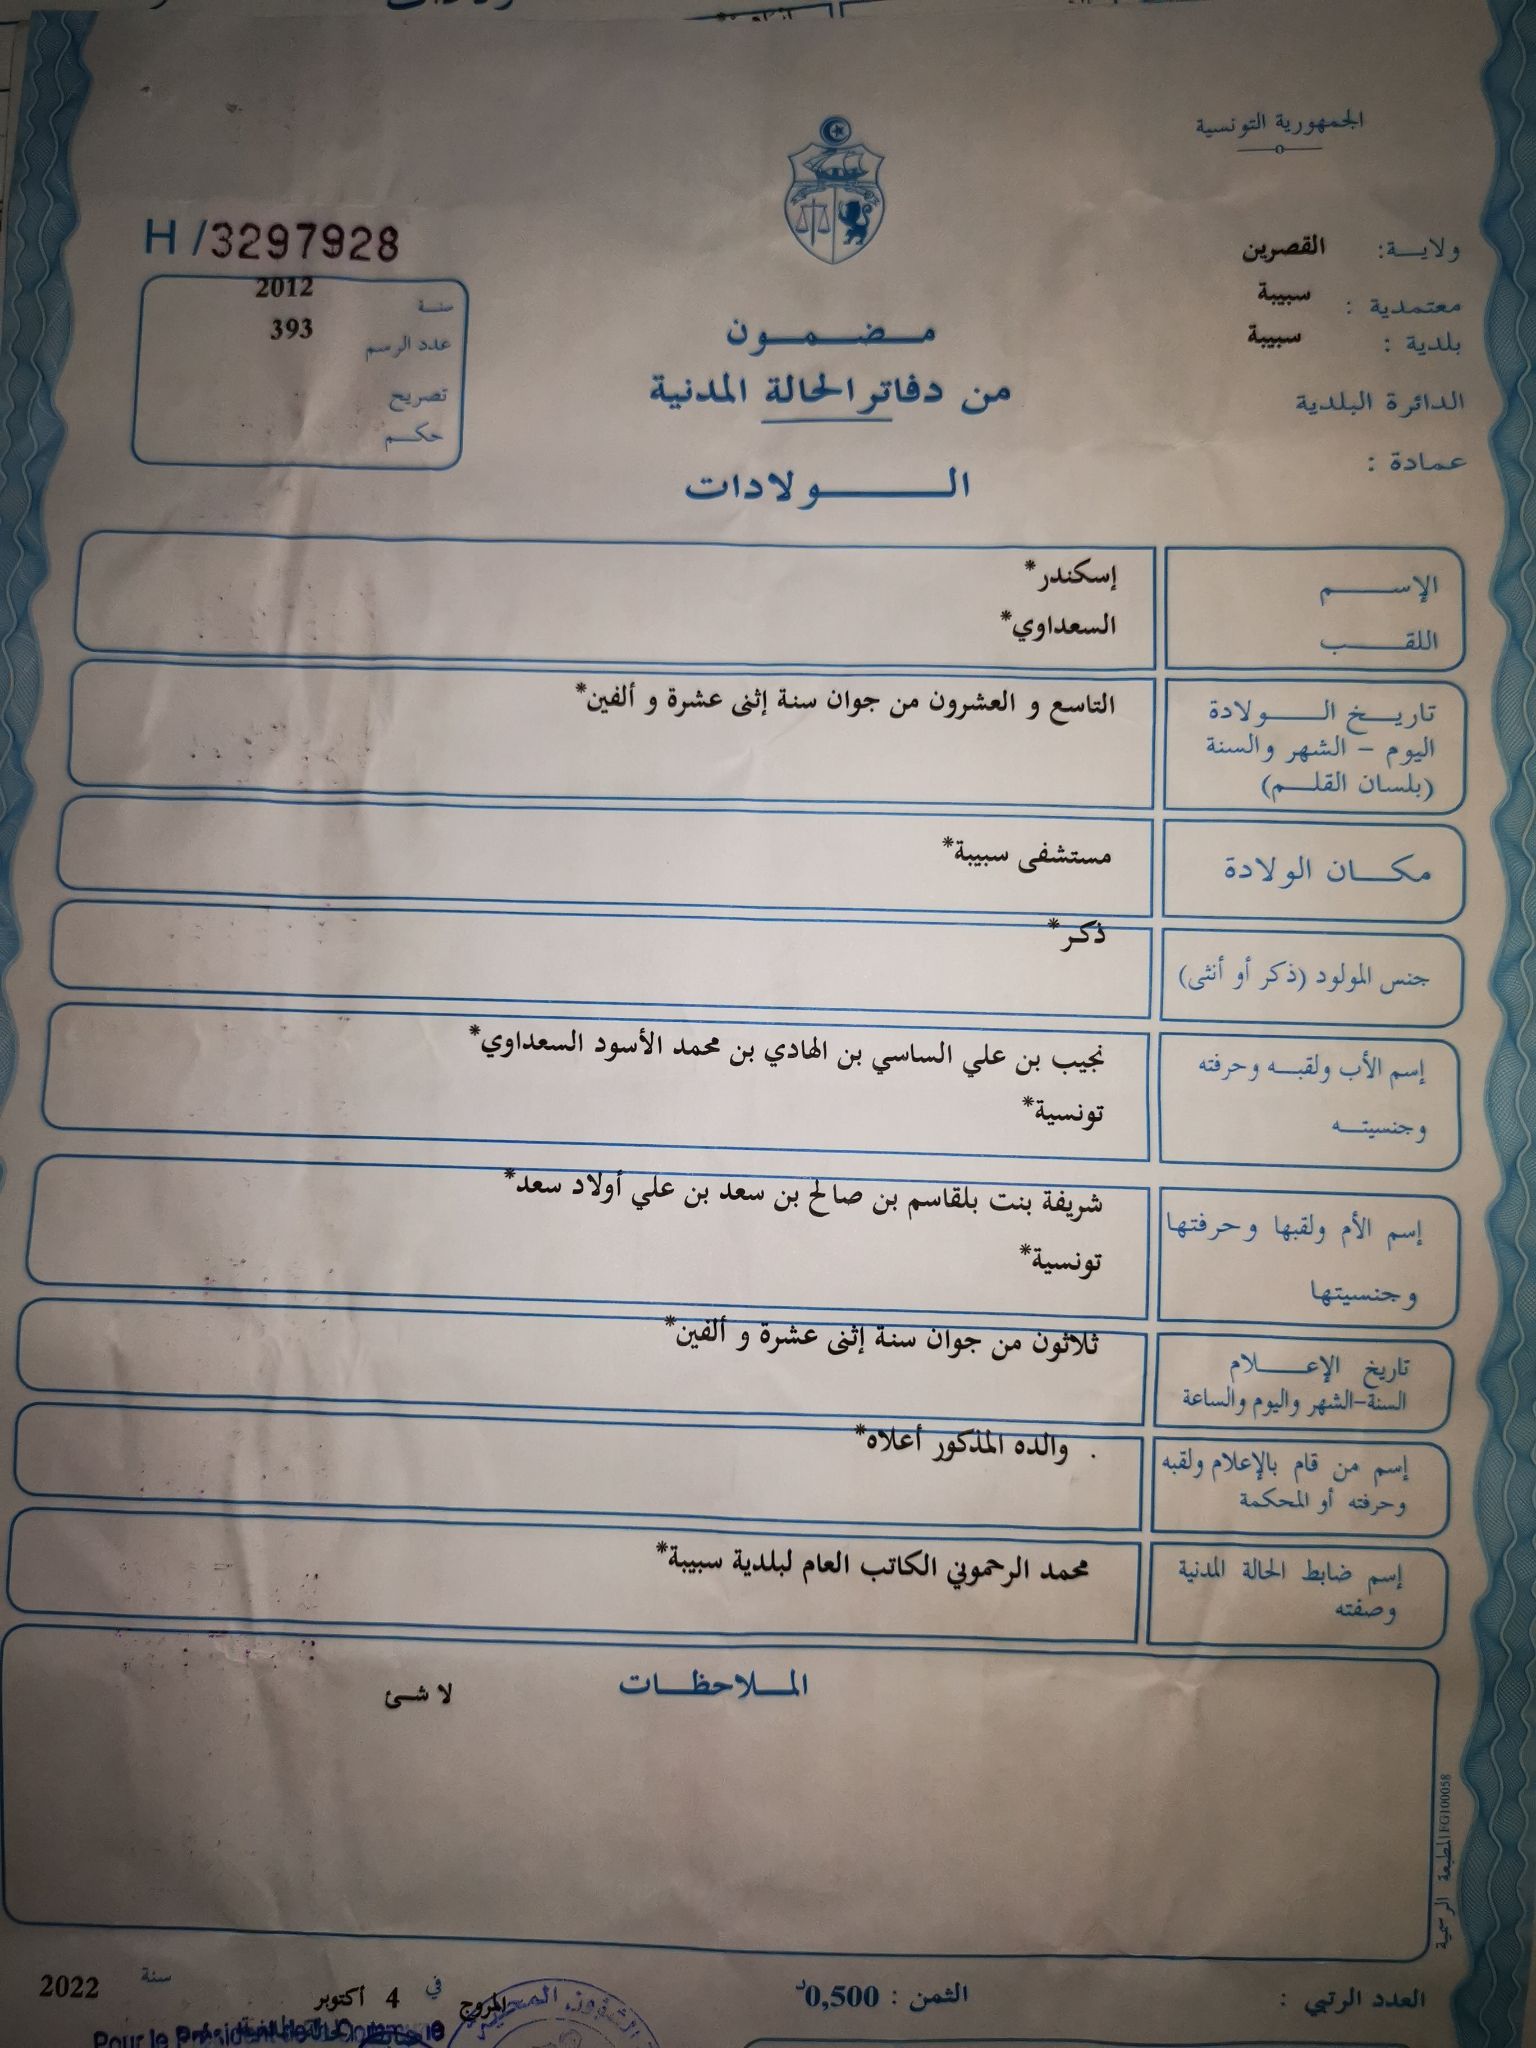 الجمهورية التونسية
ولايـــة: القصرين
معتمدية : سبيبة
بلدية : سبيبة
الدائرة البلدية
عمادة :
H /3297928
سنة 2012
عدد الرسم 393
تصريح
حكم
مضمون
من دفاتر الحالة المدنية
الولادات
الإسم إسكندر*
اللقب السعداوي*
تاريخ الولادة التاسع و العشرون من جوان سنة إثنى عشرة و ألفين*
اليوم – الشهر والسنة
(بلسان القلم)
مكان الولادة مستشفى سبيبة*
جنس المولود (ذكر أو أنثى) ذكر*
إسم الأب ولقبه وحرفته نجيب بن علي الساسي بن الهادي بن محمد الأسود السعداوي*
وجنسيته تونسية*
إسم الأم ولقبها وحرفتها شريفة بنت بلقاسم بن صالح بن سعد بن علي أولاد سعد*
وجنسيتها تونسية*
تاريخ الإعلام ثلاثون من جوان سنة إثنى عشرة و ألفين*
السنة–الشهر واليوم والساعة
إسم من قام بالإعلام ولقبه . والده المذكور أعلاه*
وحرفته أو المحكمة
إسم ضابط الحالة المدنية محمد الرحموني الكاتب العام لبلدية سبيبة*
وصفته
الملاحظات لا شئ
المطبعة الرسمية FG100058
العدد الرتبي : الثمن : 0,500د المروج في 4 أكتوبر سنة 2022
Pour le Président de la Commune